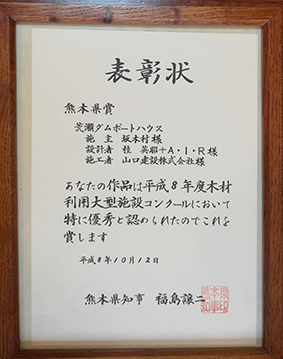 表彰状
熊本県賞
荒瀬ダムボートハウス
施主 坂本村様
設計者 桂英昭+A・I・R様
施工者 山口建設株式会社様
あなたの作品は平成8年度木材
利用大型施設コンクールにおいて
特に優秀と認められたのでこれを
賞します
平成8年10月12日
熊本県知事 福島譲二